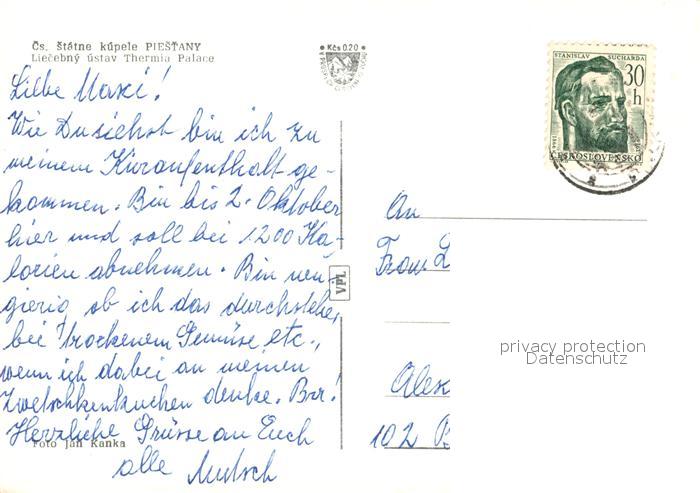 Čs. štátne kúpele PIEŠŤANY
Liečebný ústav Thermia Palace
Kčs 0.20
STANISLAV SUCHARDA
30
h
ČESKOSLOVENSKO
Liebe Maxi!
Wie Du siehst bin ich zu
meinem Kuraufenthalt ge-
kommen. Bin bis 2. Oktober
hier und soll bei 1200 Ka-
lorien abnehmen. Bin neu-
gierig ob ich das durchstehe,
bei trockenem Gemüse etc.,
wenn ich dabei an meinen
Zwetschkenkuchen denke. Brr!
Herzliche Grüsse an Euch
alle Mutsch
Foto Ján Kanka
VPL
An
Frau L
Alex
102
privacy protection
Datenschutz